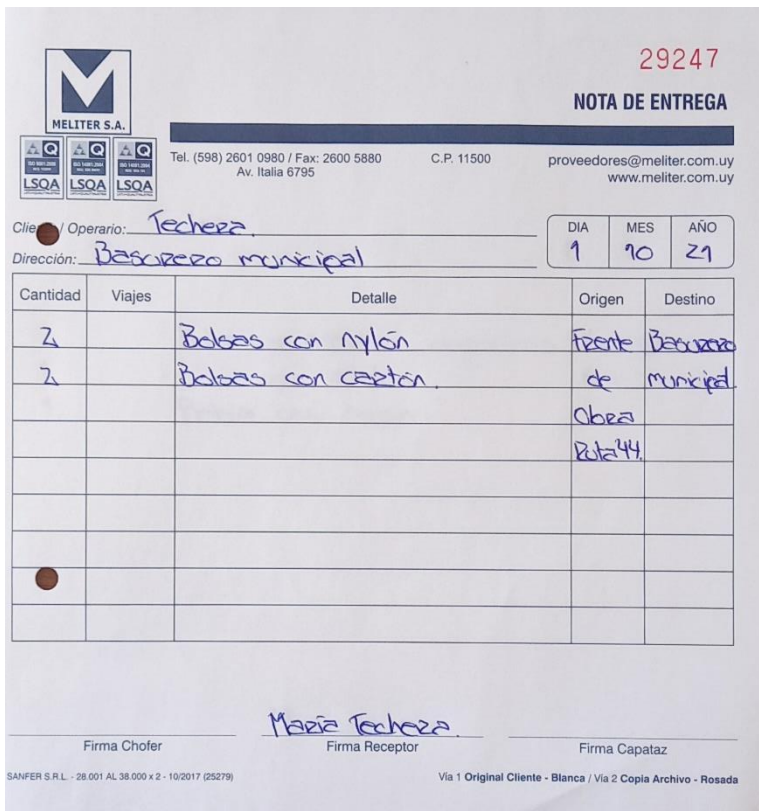 29247
NOTA DE ENTREGA
MELITER S.A.
LSQA LSQA LSQA
Tel. (598) 2601 0980 / Fax: 2600 5880
Av. Italia 6795
C.P. 11500
proveedores@meliter.com.uy
www.meliter.com.uy
Operario: Techera.
Dirección: Basurero municipal
DIA MES AÑO
1 10 21
Cantidad Viajes Detalle Origen Destino
2 Bolsas con nylón Frente Basurero
2 Bolsas con cartón. de municipal.
Obra
Ruta 44.
María Techera.
Firma Chofer Firma Receptor Firma Capataz
SANFER S.R.L. - 28.001 AL 38.000 x 2 - 10/2017 (25279)
Vía 1 Original Cliente - Blanca / Vía 2 Copia Archivo - Rosada